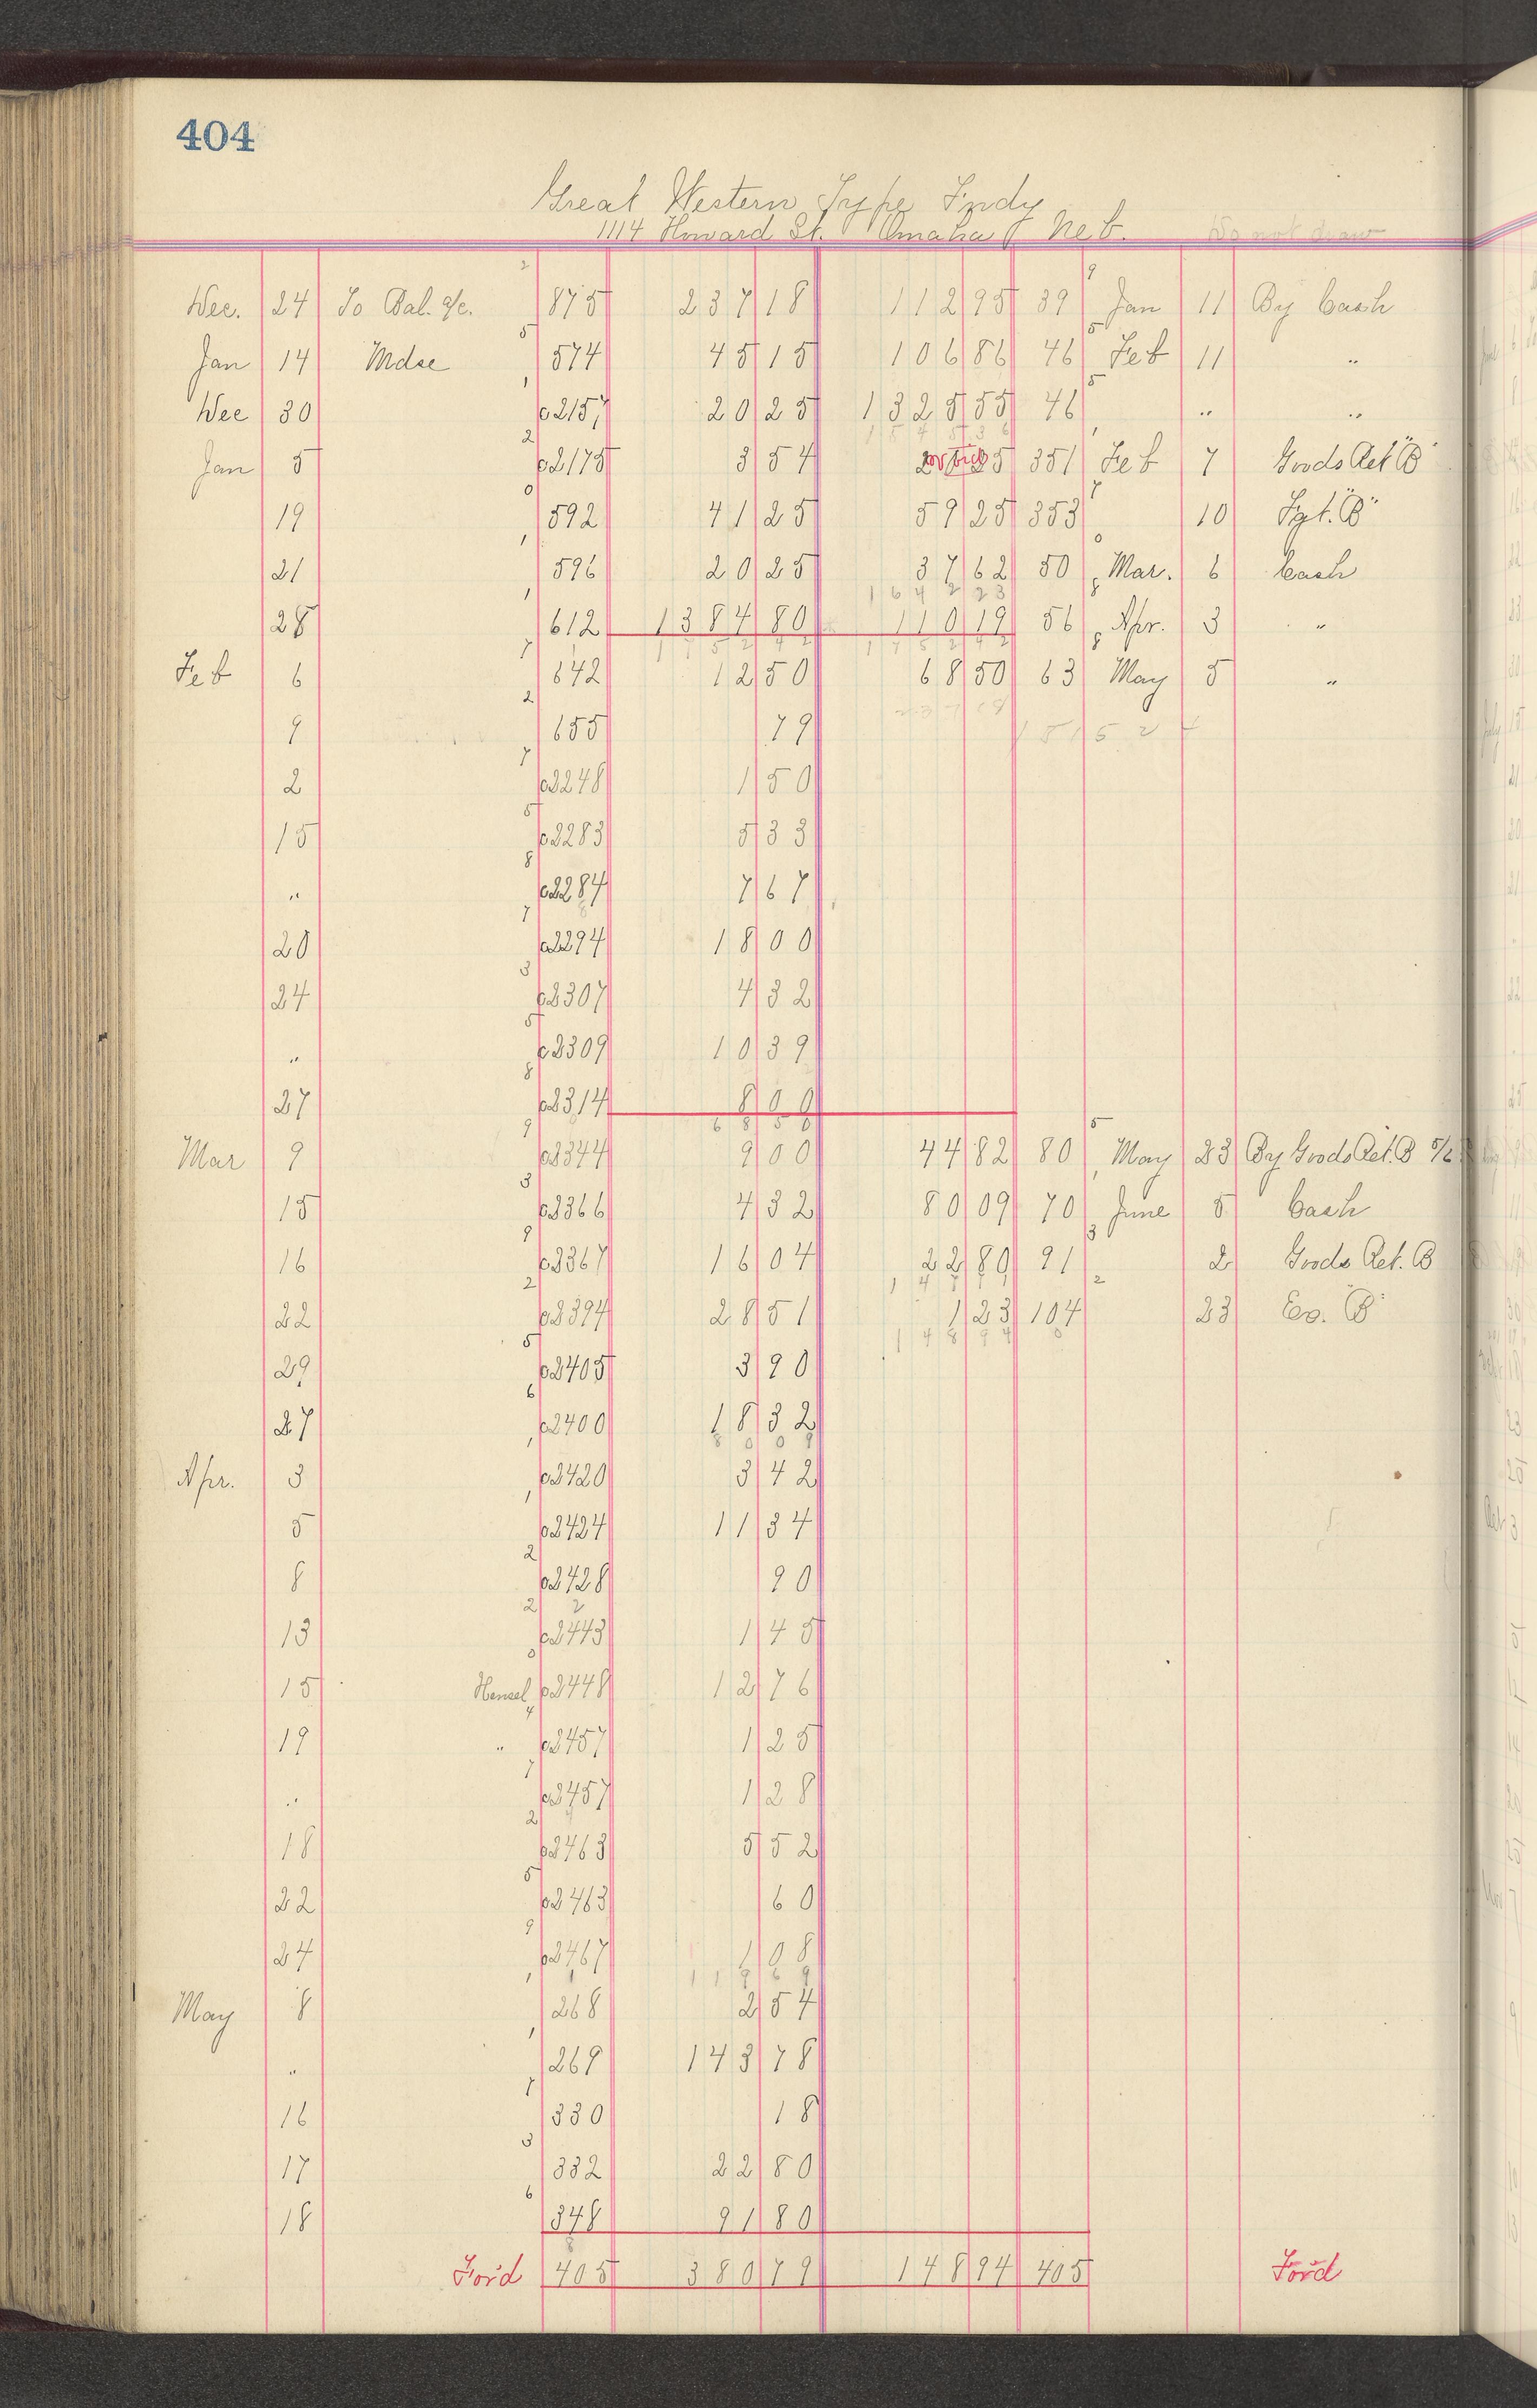 404
Great Western Type Fndy
1114 Howard St. Omaha Neb.
Do not draw
Dec. 24 To Bal. a/c. 875 237 18 112 95 39 Jan 11 By Cash
Jan 14 Mdse 574 45 15 106 86 46 Feb 11 "
Dec 30 2157 20 25 1325 55 46 " "
Jan 5 2175 3 54 351 Feb 7 Goods Ret "B"
19 592 41 25 59 25 353 10 Fgt. "B"
21 596 20 25 37 62 50 Mar. 6 Cash
28 612 1384 80 110 19 56 Apr. 3 "
Feb 6 642 12 50 68 50 63 May 5 "
9 655 79
2 2248 1 50
15 2283 5 33
" 2284 7 67
20 2294 18 00
24 2307 4 32
" 2309 10 39
27 2314 8 00
Mar 9 2344 9 00 44 82 80 May 23 By Goods Ret. B
15 2366 4 32 80 09 70 June 5 Cash
16 2367 16 04 22 80 91 2 Goods Ret. B
22 2394 28 51 1 23 104 23 Eo. "B"
29 2405 3 90
27 2400 18 32
Apr. 3 2420 3 42
5 2424 11 34
8 2428 90
13 2443 1 45
15 Hensel 2448 12 76
19 " 2457 1 25
" 2457 1 28
18 2463 5 52
22 2463 60
24 2467 1 08
May 8 268 2 54
" 269 143 78
16 330 18
17 332 22 80
18 348 91 80
For'd 405 380 79 148 94 405 For'd